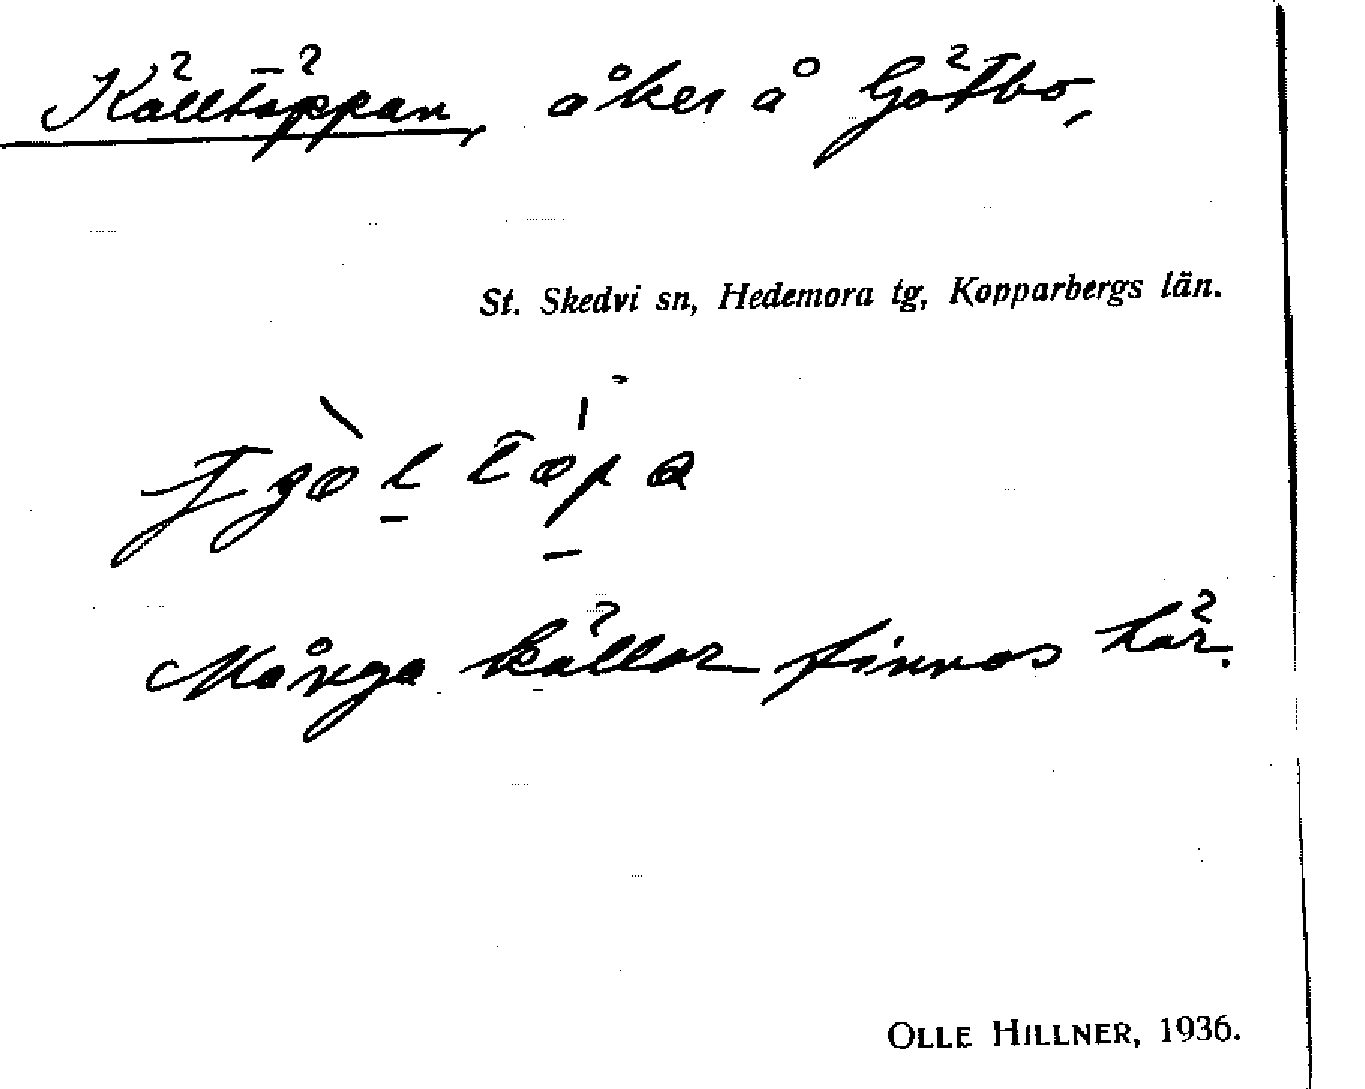 Källtäppan, åker å Götbo,
St. Skedvi sn, Hedemora tg, Kopparbergs län.
Många källor finnas här.
OLLE HILLNER, 1936.